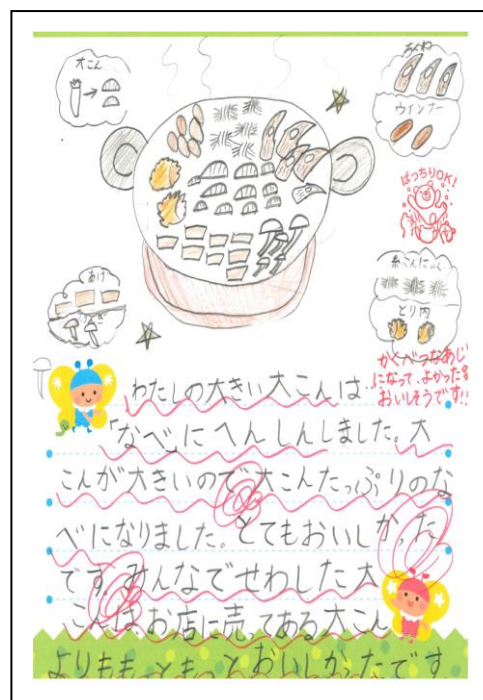 大こん
ちくわ
ウインナー
ばっちりOK!
糸こんにゃく
とり肉
あげ
かくべつなあじ
になって、よかったね
おいしそうです!!
わたしの大きい大こんは
「なべ」にへんしんしました。大
こんが大きいので大こんたっぷりのな
べになりました。とてもおいしかった
です。みんなでせわした大
こんは、お店に売ってある大こん
よりももっともっとおいしかったです